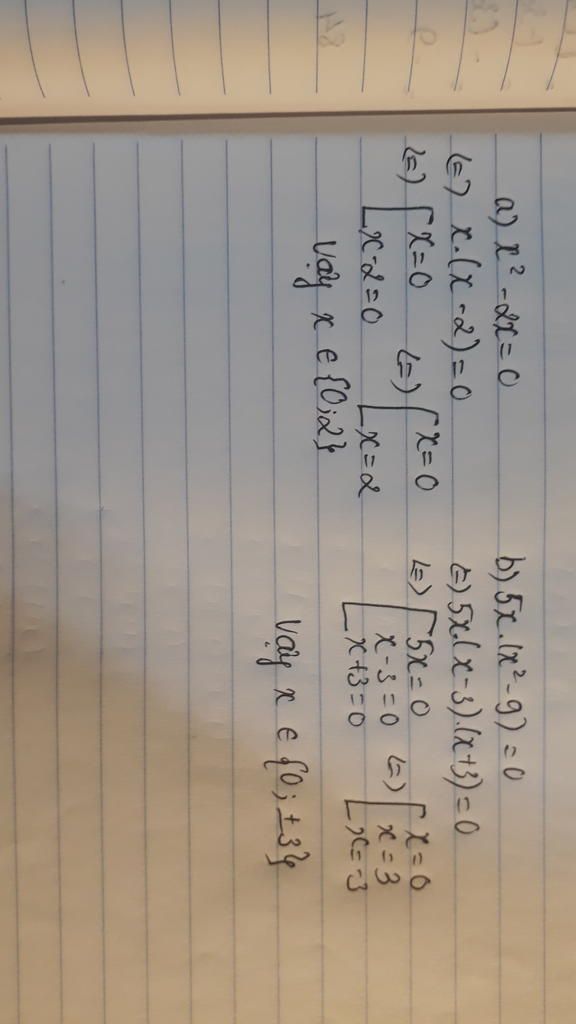 a) x² - 2x = 0
(=) x.(x - 2) = 0
(=) [x = 0
x - 2 = 0
(=) [x = 0
x = 2
Vậy x ∈ {0; 2}
b) 5x.(x² - 9) = 0
(=) 5x.(x - 3).(x + 3) = 0
(=) [5x = 0
x - 3 = 0
x + 3 = 0
(=) [x = 0
x = 3
x = -3
Vậy x ∈ {0; ±3}